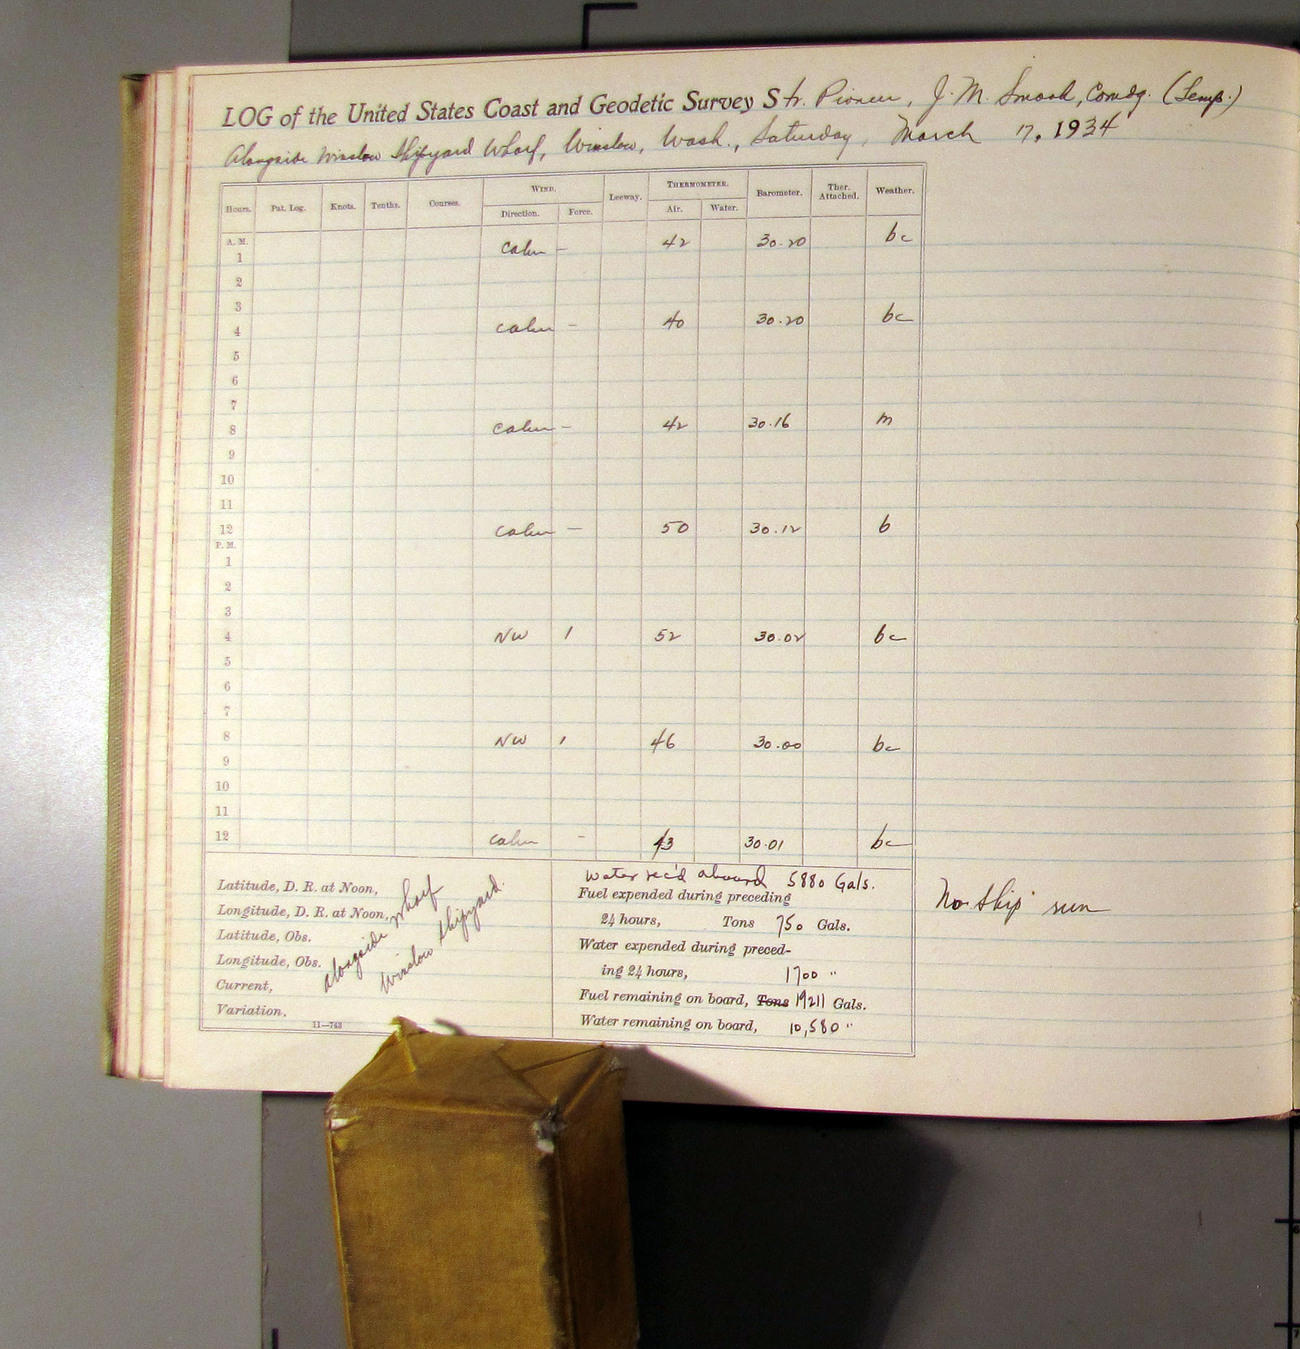 LOG of the United States Coast and Geodetic Survey Str. Pioneer, J. M. Smook, Comdg. (Temp.)
Alongside Winslow Shipyard Wharf, Winslow, Wash., Saturday, March 17, 1934
Hours. Pat. Log. Knots. Tenths. Courses. WIND. Direction. Force. Leeway. THERMOMETER. Air. Water. Barometer. Ther. Attached. Weather.
A. M.
1 calm – 42 30.20 bc
2
3
4 calm – 40 30.20 bc
5
6
7
8 calm – 42 30.16 m
9
10
11
12 calm – 50 30.12 b
P. M.
1
2
3
4 NW 1 52 30.02 bc
5
6
7
8 NW 1 46 30.00 bc
9
10
11
12 calm – 43 30.01 bc
Latitude, D. R. at Noon,
Longitude, D. R. at Noon,
Latitude, Obs.
Longitude, Obs.
Current,
Variation,
alongside Wharf
Winslow Shipyard.
11—743
Water rec'd aboard 5880 Gals.
Fuel expended during preceding
24 hours, Tons 750 Gals.
Water expended during preced-
ing 24 hours, 1700 "
Fuel remaining on board, Tons 19211 Gals.
Water remaining on board, 10,580 "
No ship sun